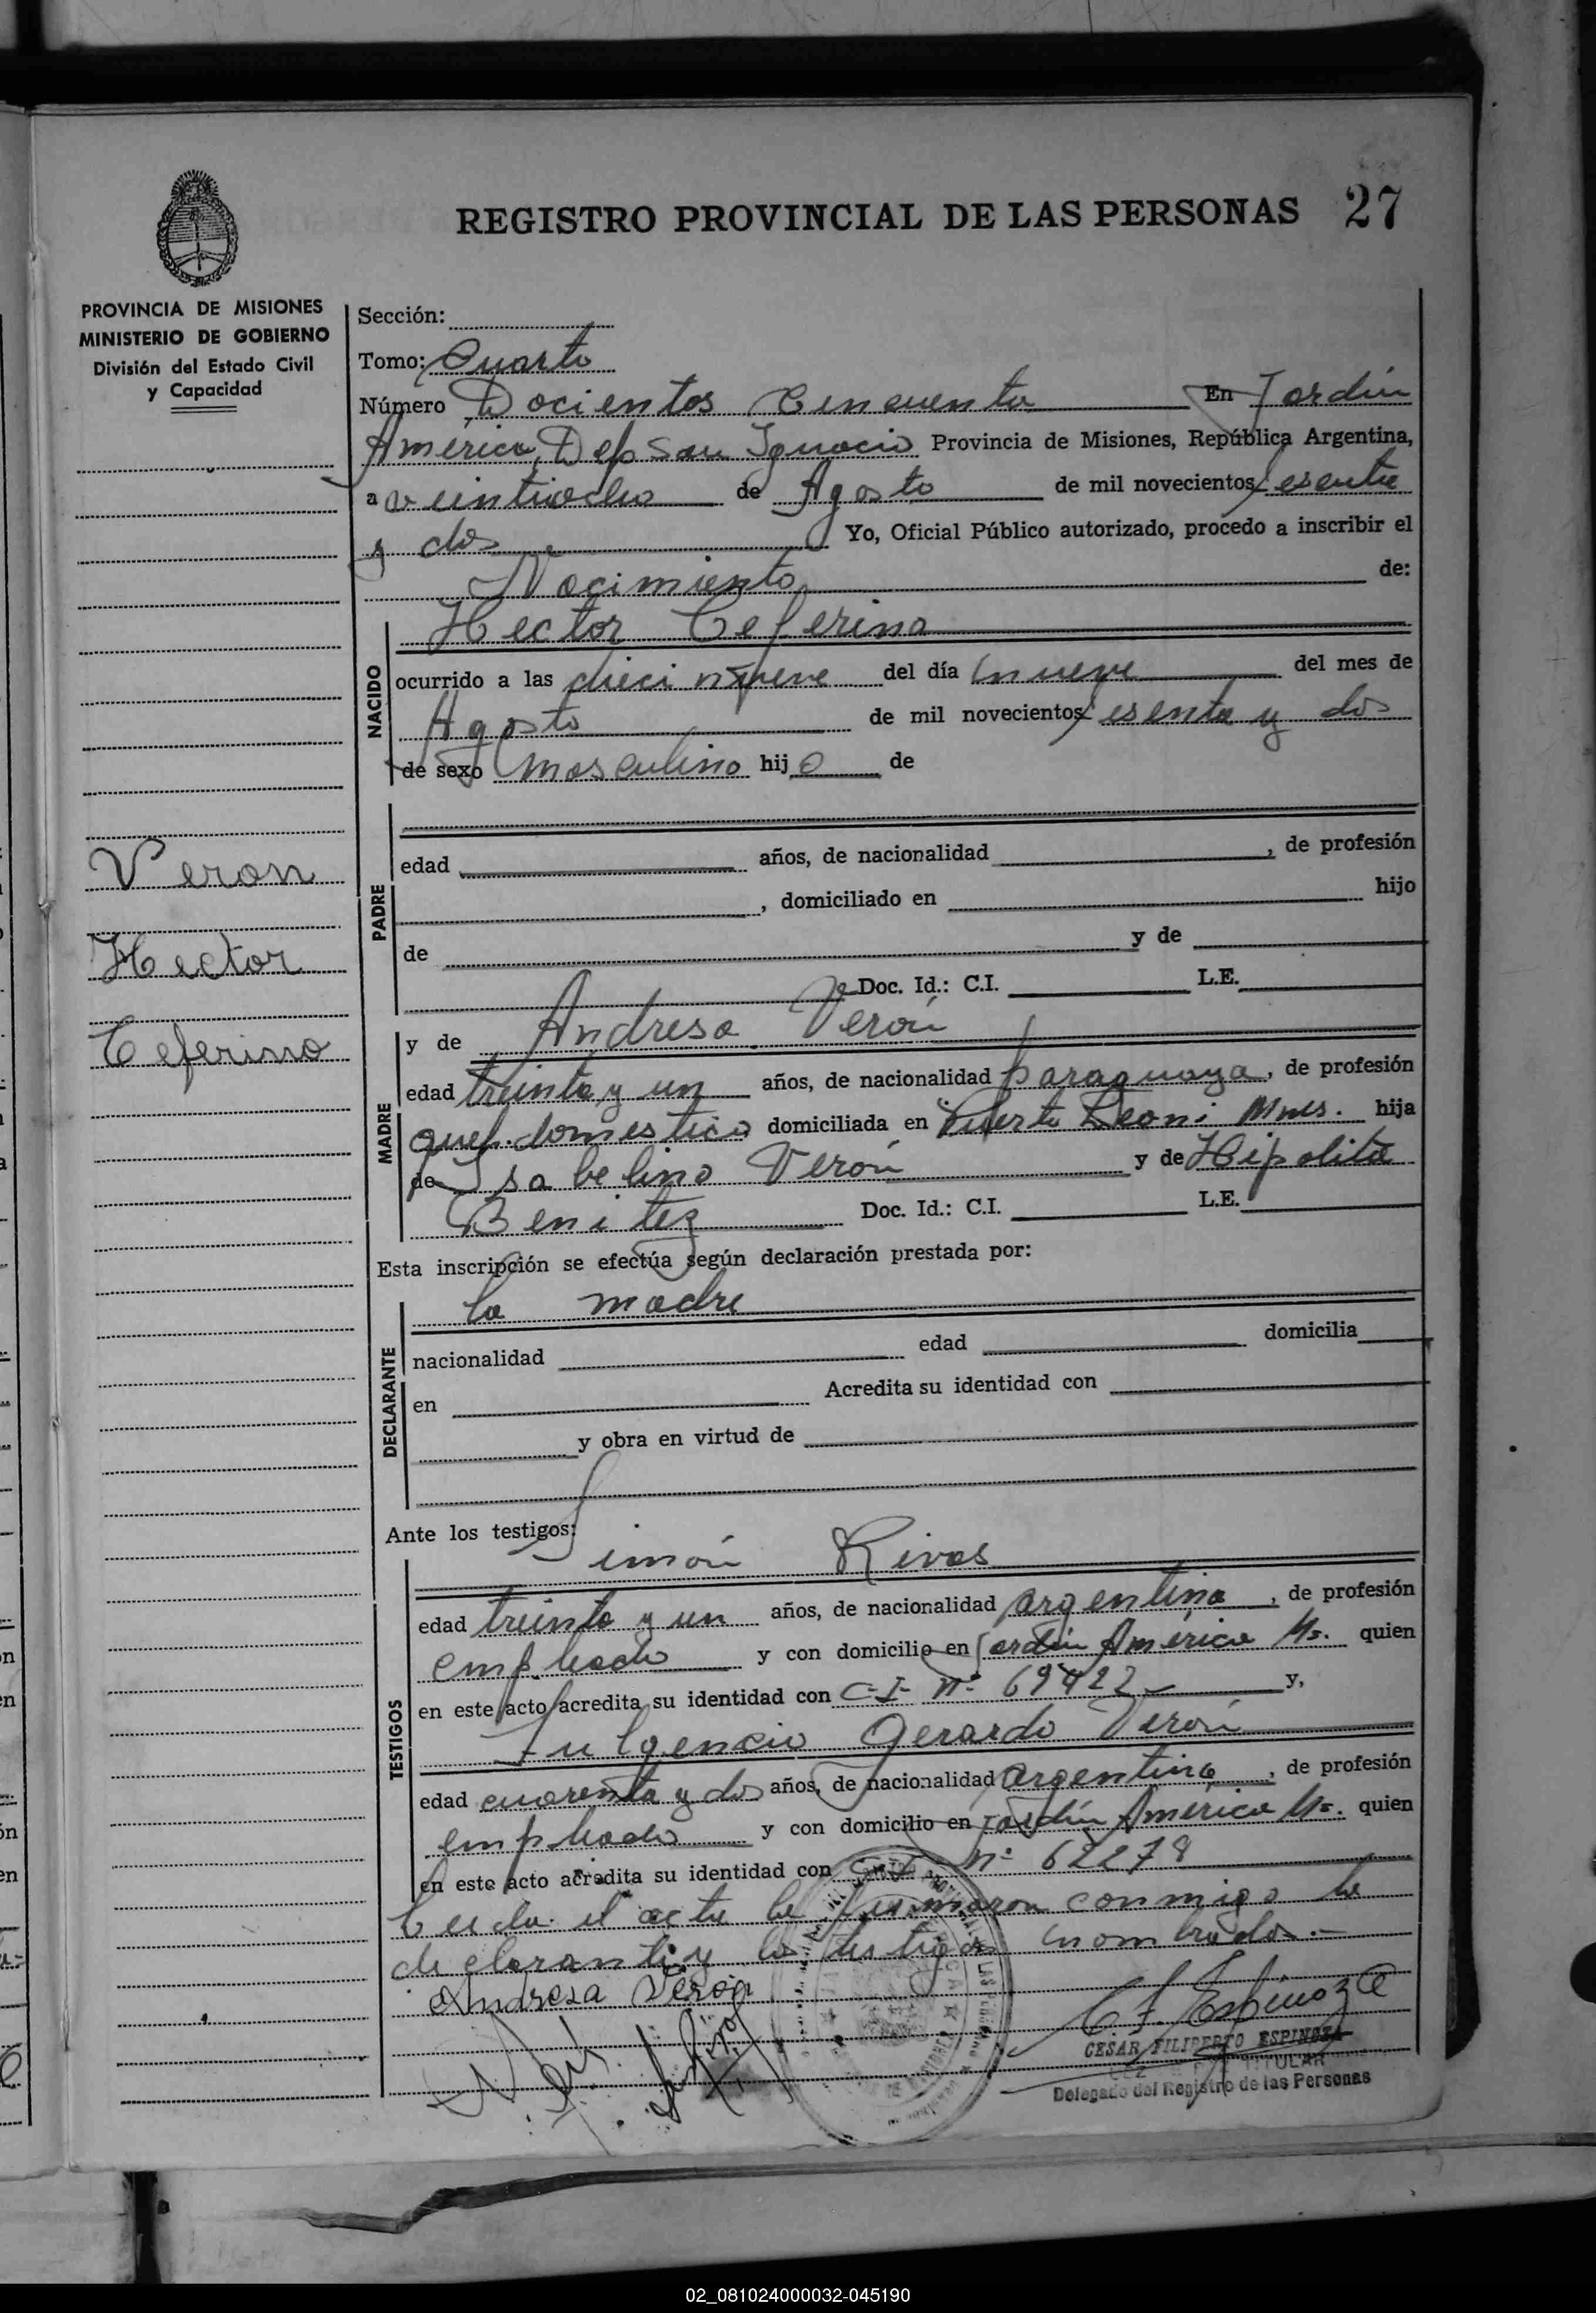 REGISTRO PROVINCIAL DE LAS PERSONAS 27
PROVINCIA DE MISIONES
MINISTERIO DE GOBIERNO
División del Estado Civil
y Capacidad
Veron
Hector
Ceferino
Sección:
Tomo: Cuarto
Número Docientos Cincuenta En Jardín
América, Dep San Ignacio Provincia de Misiones, República Argentina,
a veintiocho de Agosto de mil novecientos sesenta
y dos Yo, Oficial Público autorizado, procedo a inscribir el
Nacimiento de:
NACIDO
Hector Ceferino
ocurrido a las dieci nueve del día nueve del mes de
Agosto de mil novecientos sesenta y dos
de sexo masculino hijo de
PADRE
edad años, de nacionalidad , de profesión
, domiciliado en hijo
de y de
Doc. Id.: C.I. L.E.
MADRE
y de Andresa Verón
edad treinta y un años, de nacionalidad paraguaya, de profesión
queh. domestico domiciliada en Puerto Leoni Mnes. hija
de Isabelino Verón y de Hipolita
Benitez Doc. Id.: C.I. L.E.
Esta inscripción se efectúa según declaración prestada por:
DECLARANTE
la madre
nacionalidad edad domicilia
en Acredita su identidad con
y obra en virtud de
Ante los testigos:
TESTIGOS
Simón Rivas
edad treinta y un años, de nacionalidad argentina, de profesión
empleado y con domicilio en Jardín América Ms. quien
en este acto acredita su identidad con C-I- nº 69422 y,
Fulgencio Gerardo Verón
edad cuarenta y dos años, de nacionalidad argentina, de profesión
empleado y con domicilio en Jardín América Ms. quien
en este acto acredita su identidad con nº 62278
Leida el acta la firmaron conmigo la
declarante y los testigos nombrados.-
Andresa Veron
C. F. Espinoza
CESAR FILIBERTO ESPINOZA
TITULAR
Delegado del Registro de las Personas
02_081024000032-045190